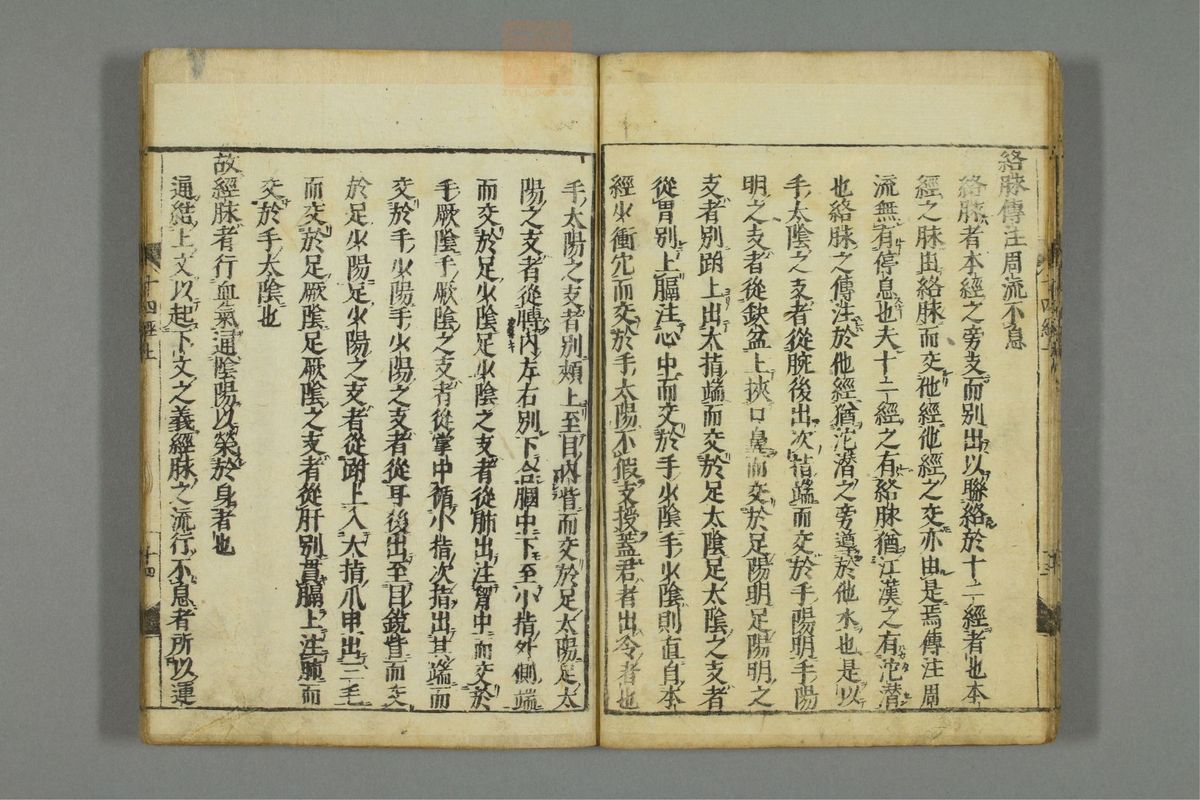 絡脉傳注周流不息
絡脉者本經之旁支而別出以聯絡於十二經者也本
經之脉由絡脉而交他經他經之交亦由是焉傳注周
流無有停息也夫十二經之有絡脉猶江漢之有沱潜
也絡脉之傳注於他經猶沱潜之旁導於他水也是以
手太陰之支者從腕後出次指端而交於手陽明手陽
明之支者從缺盆上挾口鼻而交於足陽明足陽明之
支者別跗上出大指端而交於足太陰足太陰之支者
從胃別上膈注心中而交於手少陰手少陰則直自本
經少衝穴而交於手太陽不假支授蓋君者出令者也
手太陽之支者別頰上至目内眥而交於足太陽足太
陽之支者從膊内左右別下合膕中下至小指外側端
而交於足少陰足少陰之支者從肺出注胷中而交於
手厥陰手厥陰之支者從掌中循小指次指出其端而
交於手少陽手少陽之支者從耳後出至目鋭眥而交
於足少陽足少陽之支者從跗上入大指爪甲出三毛
而交於足厥陰足厥陰之支者從肝別貫膈上注肺而
交於手太陰也
故經脉者行血氣通陰陽以榮於身者也
通結上文以起下文之義經脉之流行不息者所以運
十四經上
十四